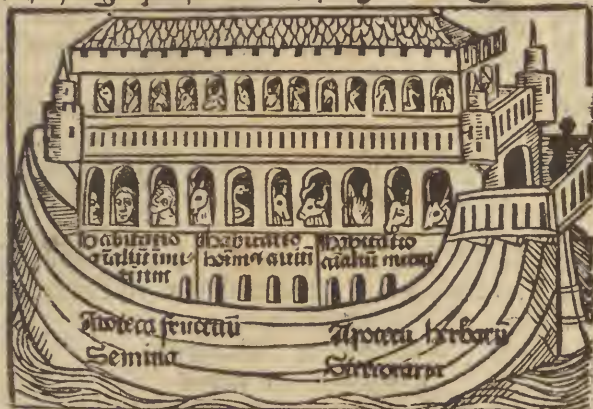 Habitatio
aīaliū imi⸗
tium
Habitatio
hoīm ⁊ auiū
Habitatio
aīaliū
Apoteca fructuū
Semina
Apoteca herbarū